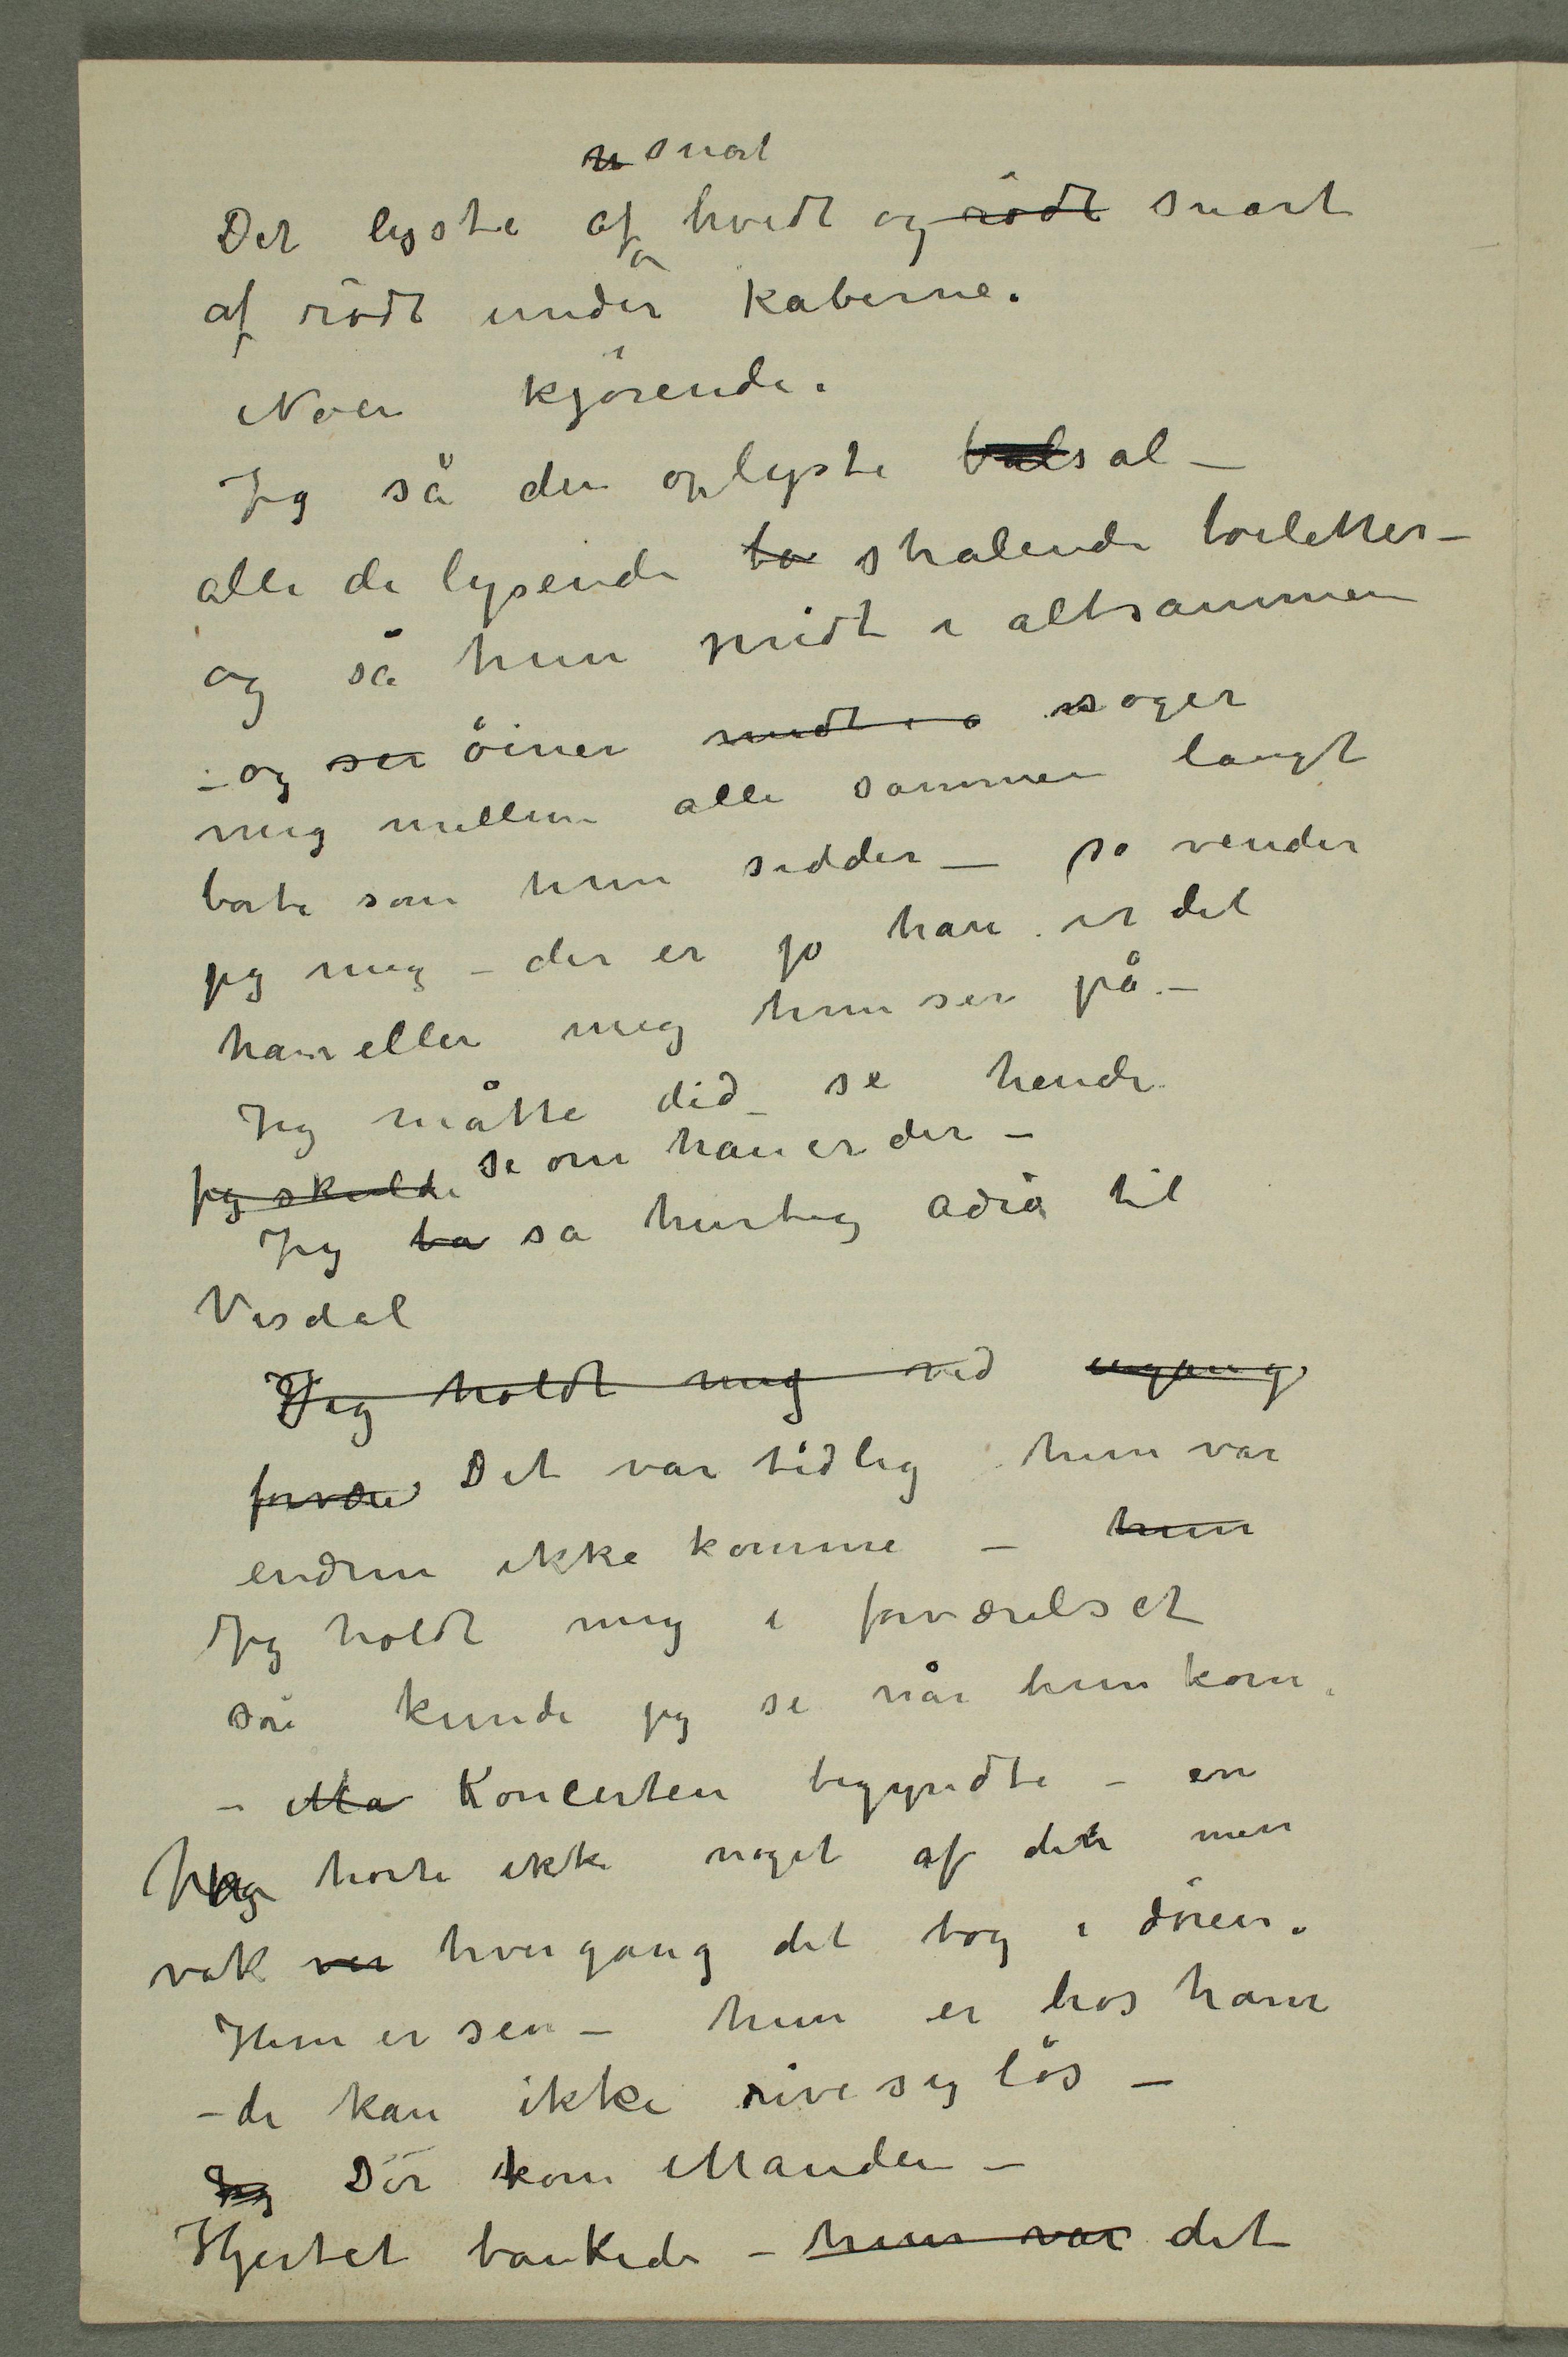 snart
Det lyste af hvidt og rödt snart
af rödt under kåberne.
Noen kjörende.
Jeg så den oplyste balsal –
alle de lysende to strålende toiletter –
og så hun midt i altsammen
– og ser öinen midt i a söger
mig mellem alle sammen langt
borte som hun sidder – så vender
jeg mig – der er jo han. er det
ham eller mig hun ser på. –
Jeg måtte did – se hende
jeg skulde se om han er der –
Jeg ba sa hurtig adiø til
Visdal
Jeg holdt mig ved engang
forvære Det var tidlig hun var
endnu ikke komme – hun
Jeg holdt mig i forværelset
så kunde jeg se når hun kom.
– Ma Koncerten begyndte – en
Jeg hörte ikke noget af den men
vak ver hvergang det tog i dören.
Hun er sen – hun er hos ham
– de kan ikke rive sig lös –
Jeg Dör kom Manden –
Hjertet bankede – hun var det